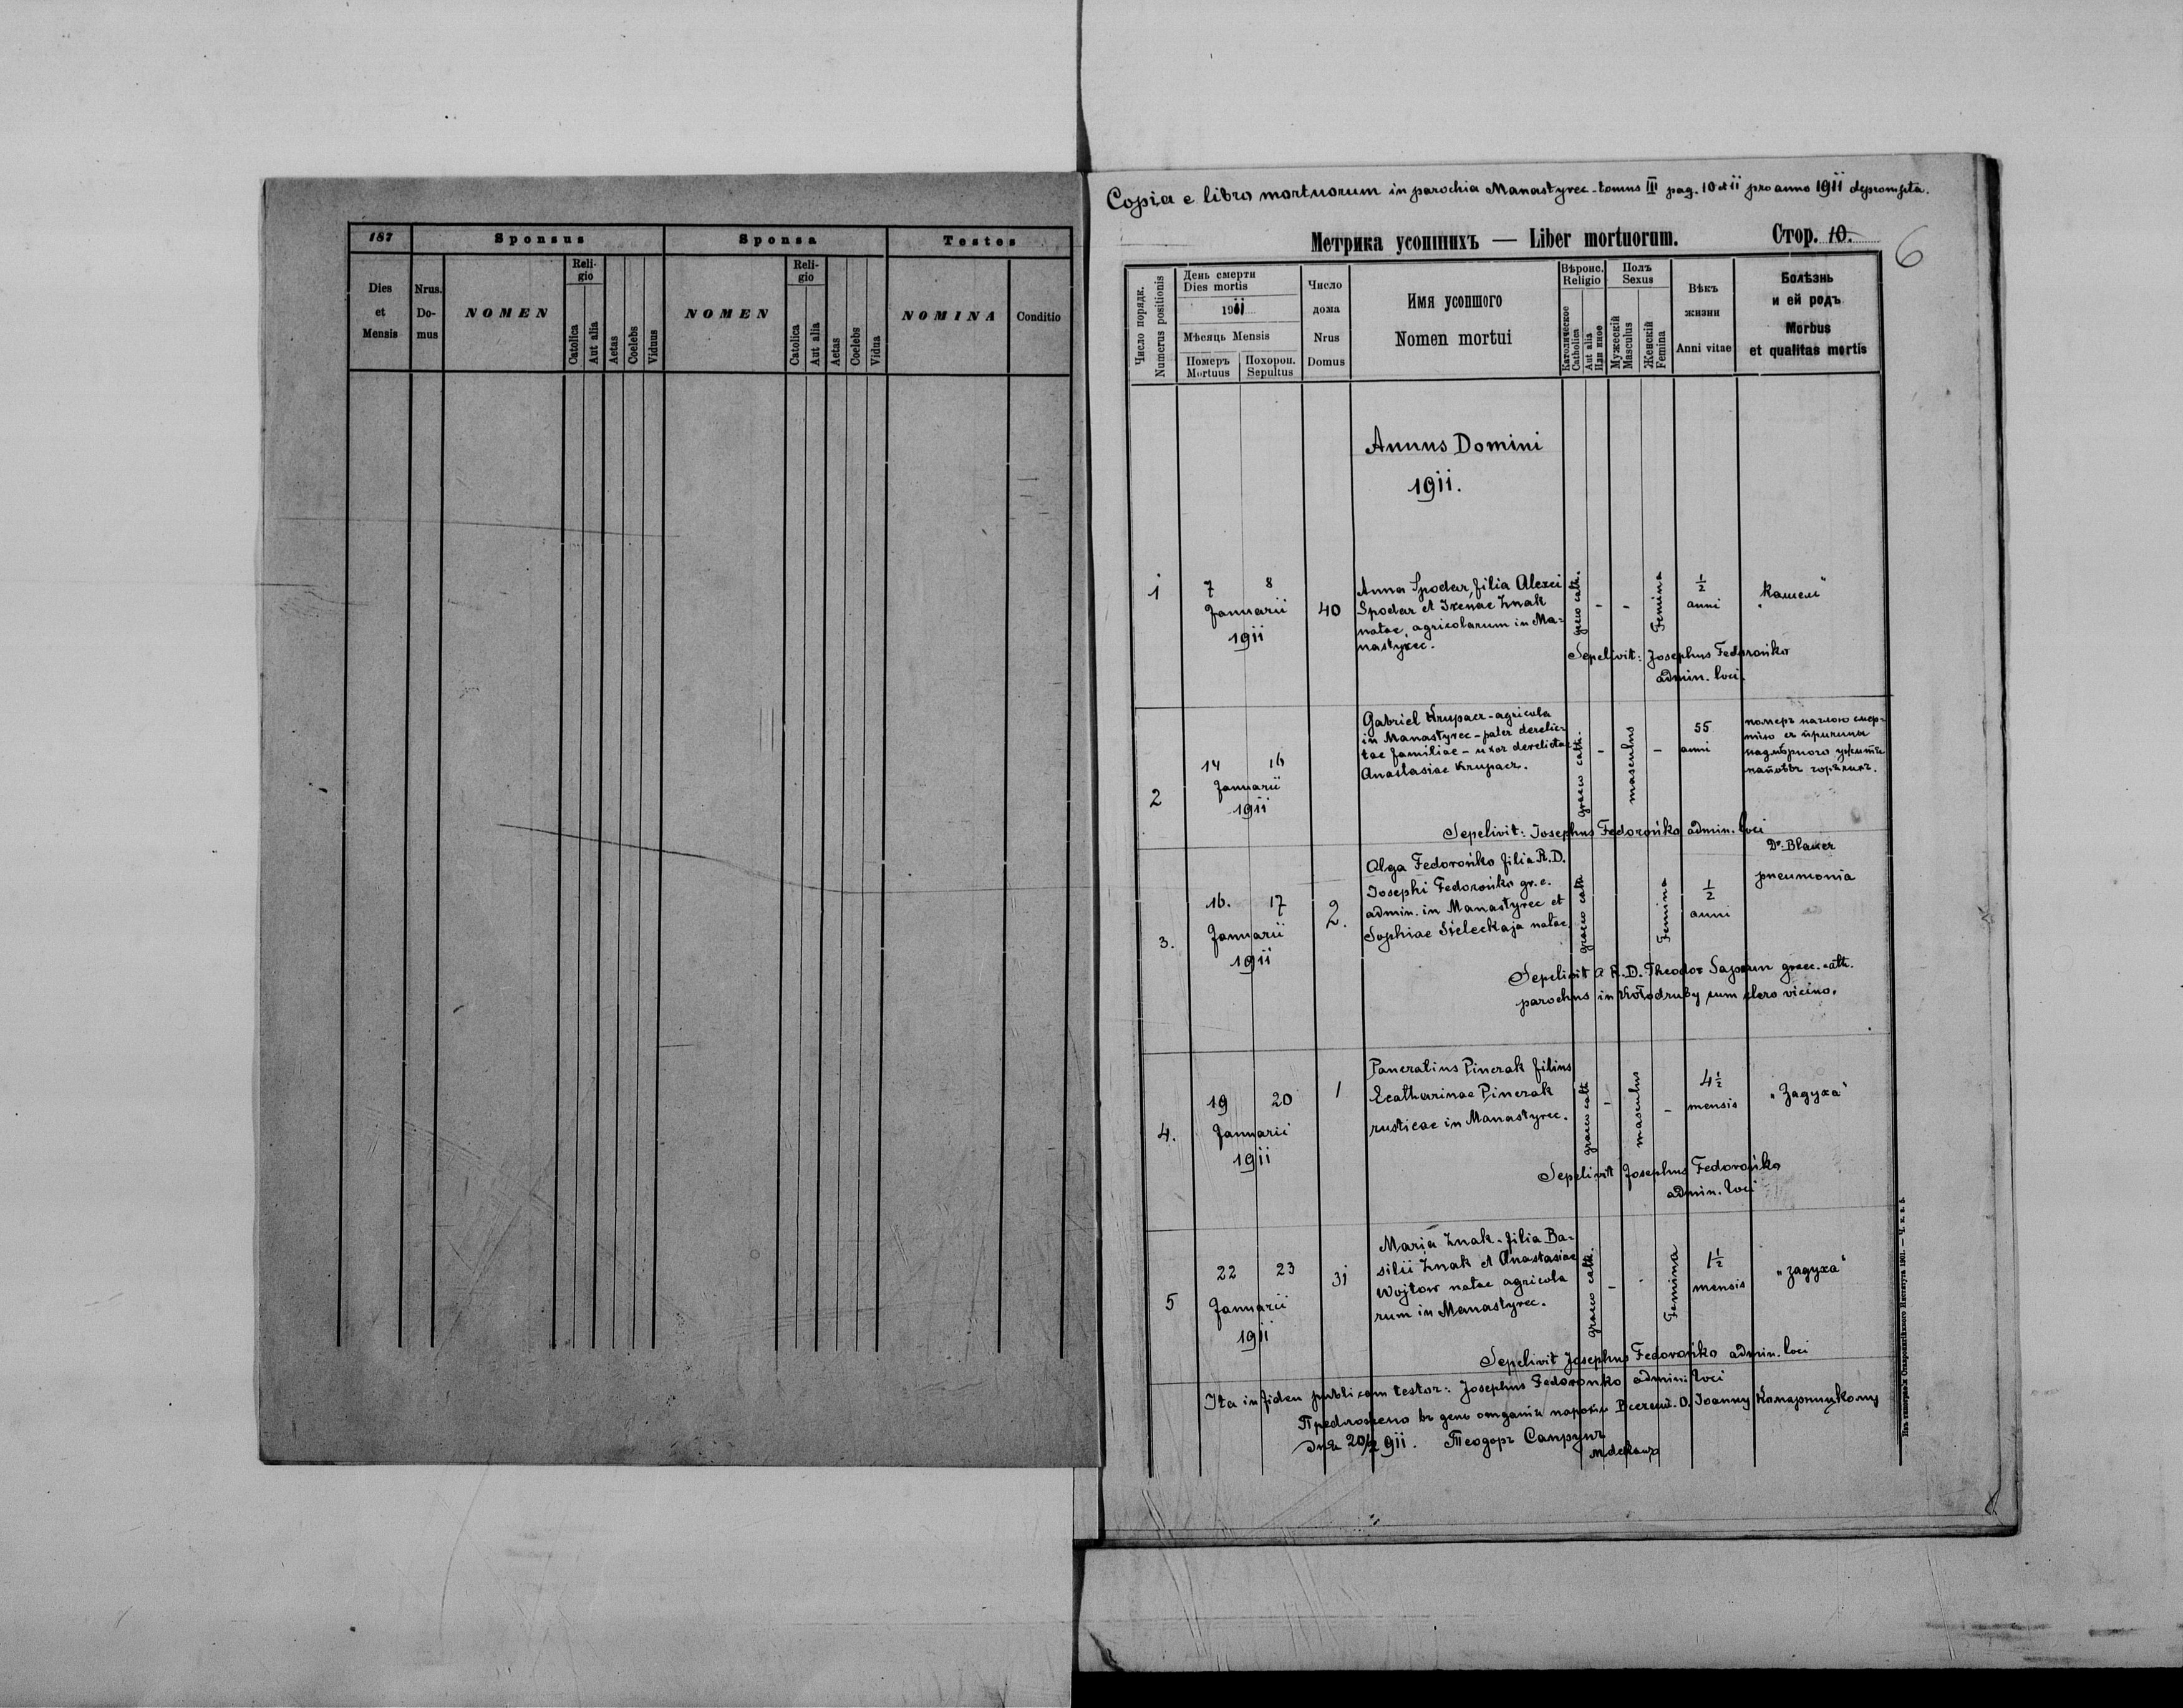 187
Sponsus
Sponsa
Testes
Dies
et
Mensis
Nrus.
Do-
mus
NOMEN
Reli-
gio
Catolica
Aut alia
Aetas
Coelebs
Viduus
NOMEN
Reli-
gio
Catolica
Aut alia
Aetas
Coelebs
Vidua
NOMINA
Conditio
Copia e libro mortuorum in parochia Manastyrec - tomus III pag. 10 et 11 pro anno 1911 deprompta.
Метрика усопшихъ — Liber mortuorum.
Стор. 10.
6
Число порядк.
Numerus positionis
День смерти
Dies mortis
1911
Мѣсяць Mensis
Померъ
Mortuus
Похорон.
Sepultus
Число
дома
Nrus
Domus
Имя усопшого
Nomen mortui
Вѣроис.
Religio
Католическое
Catholica
Aut alia
Или иное
Полъ
Sexus
Мужескій
Masculus
Женскій
Femina
Вѣкъ
жизни
Anni vitae
Болѣзнь
и ей родъ
Morbus
et qualitas mortis
Annus Domini
1911.
1
7 8
Januarii
1911
40
Anna Spodar, filia Alexei
Spodar et Xenae Znak
natae, agricolarum in Ma-
nastyrec.
greco cath.
-
-
Femina
1/2
anni
"Кашель"
Sepelivit: Josephus Fedorońko
admin. loci.
2
14 16
Januarii
1911
Gabriel Krupacz - agricola
in Manastyrec - pater derelic-
tae familiae - uxor derelicta
Anastasiae Krupacz.
graeco cath.
-
masculus
-
55
anni
померъ наглою смер-
тію съ причины
надмѣрного ужитія
напоѣвъ горячихъ.
Sepelivit: Josephus Fedorońko admin. loci
3.
16. 17
Januarii
1911
2.
Olga Fedorońko filia R.D.
Josephi Fedorońko gr. c.
admin. in Manastyrec et
Sophiae Sieleckaja natae.
graeco cath
Femina
1/2
anni
pneumonia
Sepelivit a R.D. Theodor Saprun graec. cath.
parochus in Kołodruby cum clero vicino.
4.
19 20
Januarii
1911
1
Pancratius Pinczak filius
Ecatharinae Pinczak
rusticae in Manastyrec.
graeco cath
-
masculus
-
4 1/2
mensis
"Задуха"
Sepelivit Josephus Fedorońko
admin. loci
5
22 23
Januarii
1911
31
Maria Znak - filia Ba-
silii Znak et Anastasiae
Wojtow natae agricola
rum in Manastyrec.
graeco cath.
-
Femina
1 1/2
mensis
"задуха"
Sepelivit Josephus Fedorońko admin. loci
Ita in fidem publicam testor: Josephus Fedoronko admin: loci
Предложено въ день отданія парохіи Всечест. О. Іоанну Комарницкому
дня 20/2 911. Теодоръ Сапрунъ